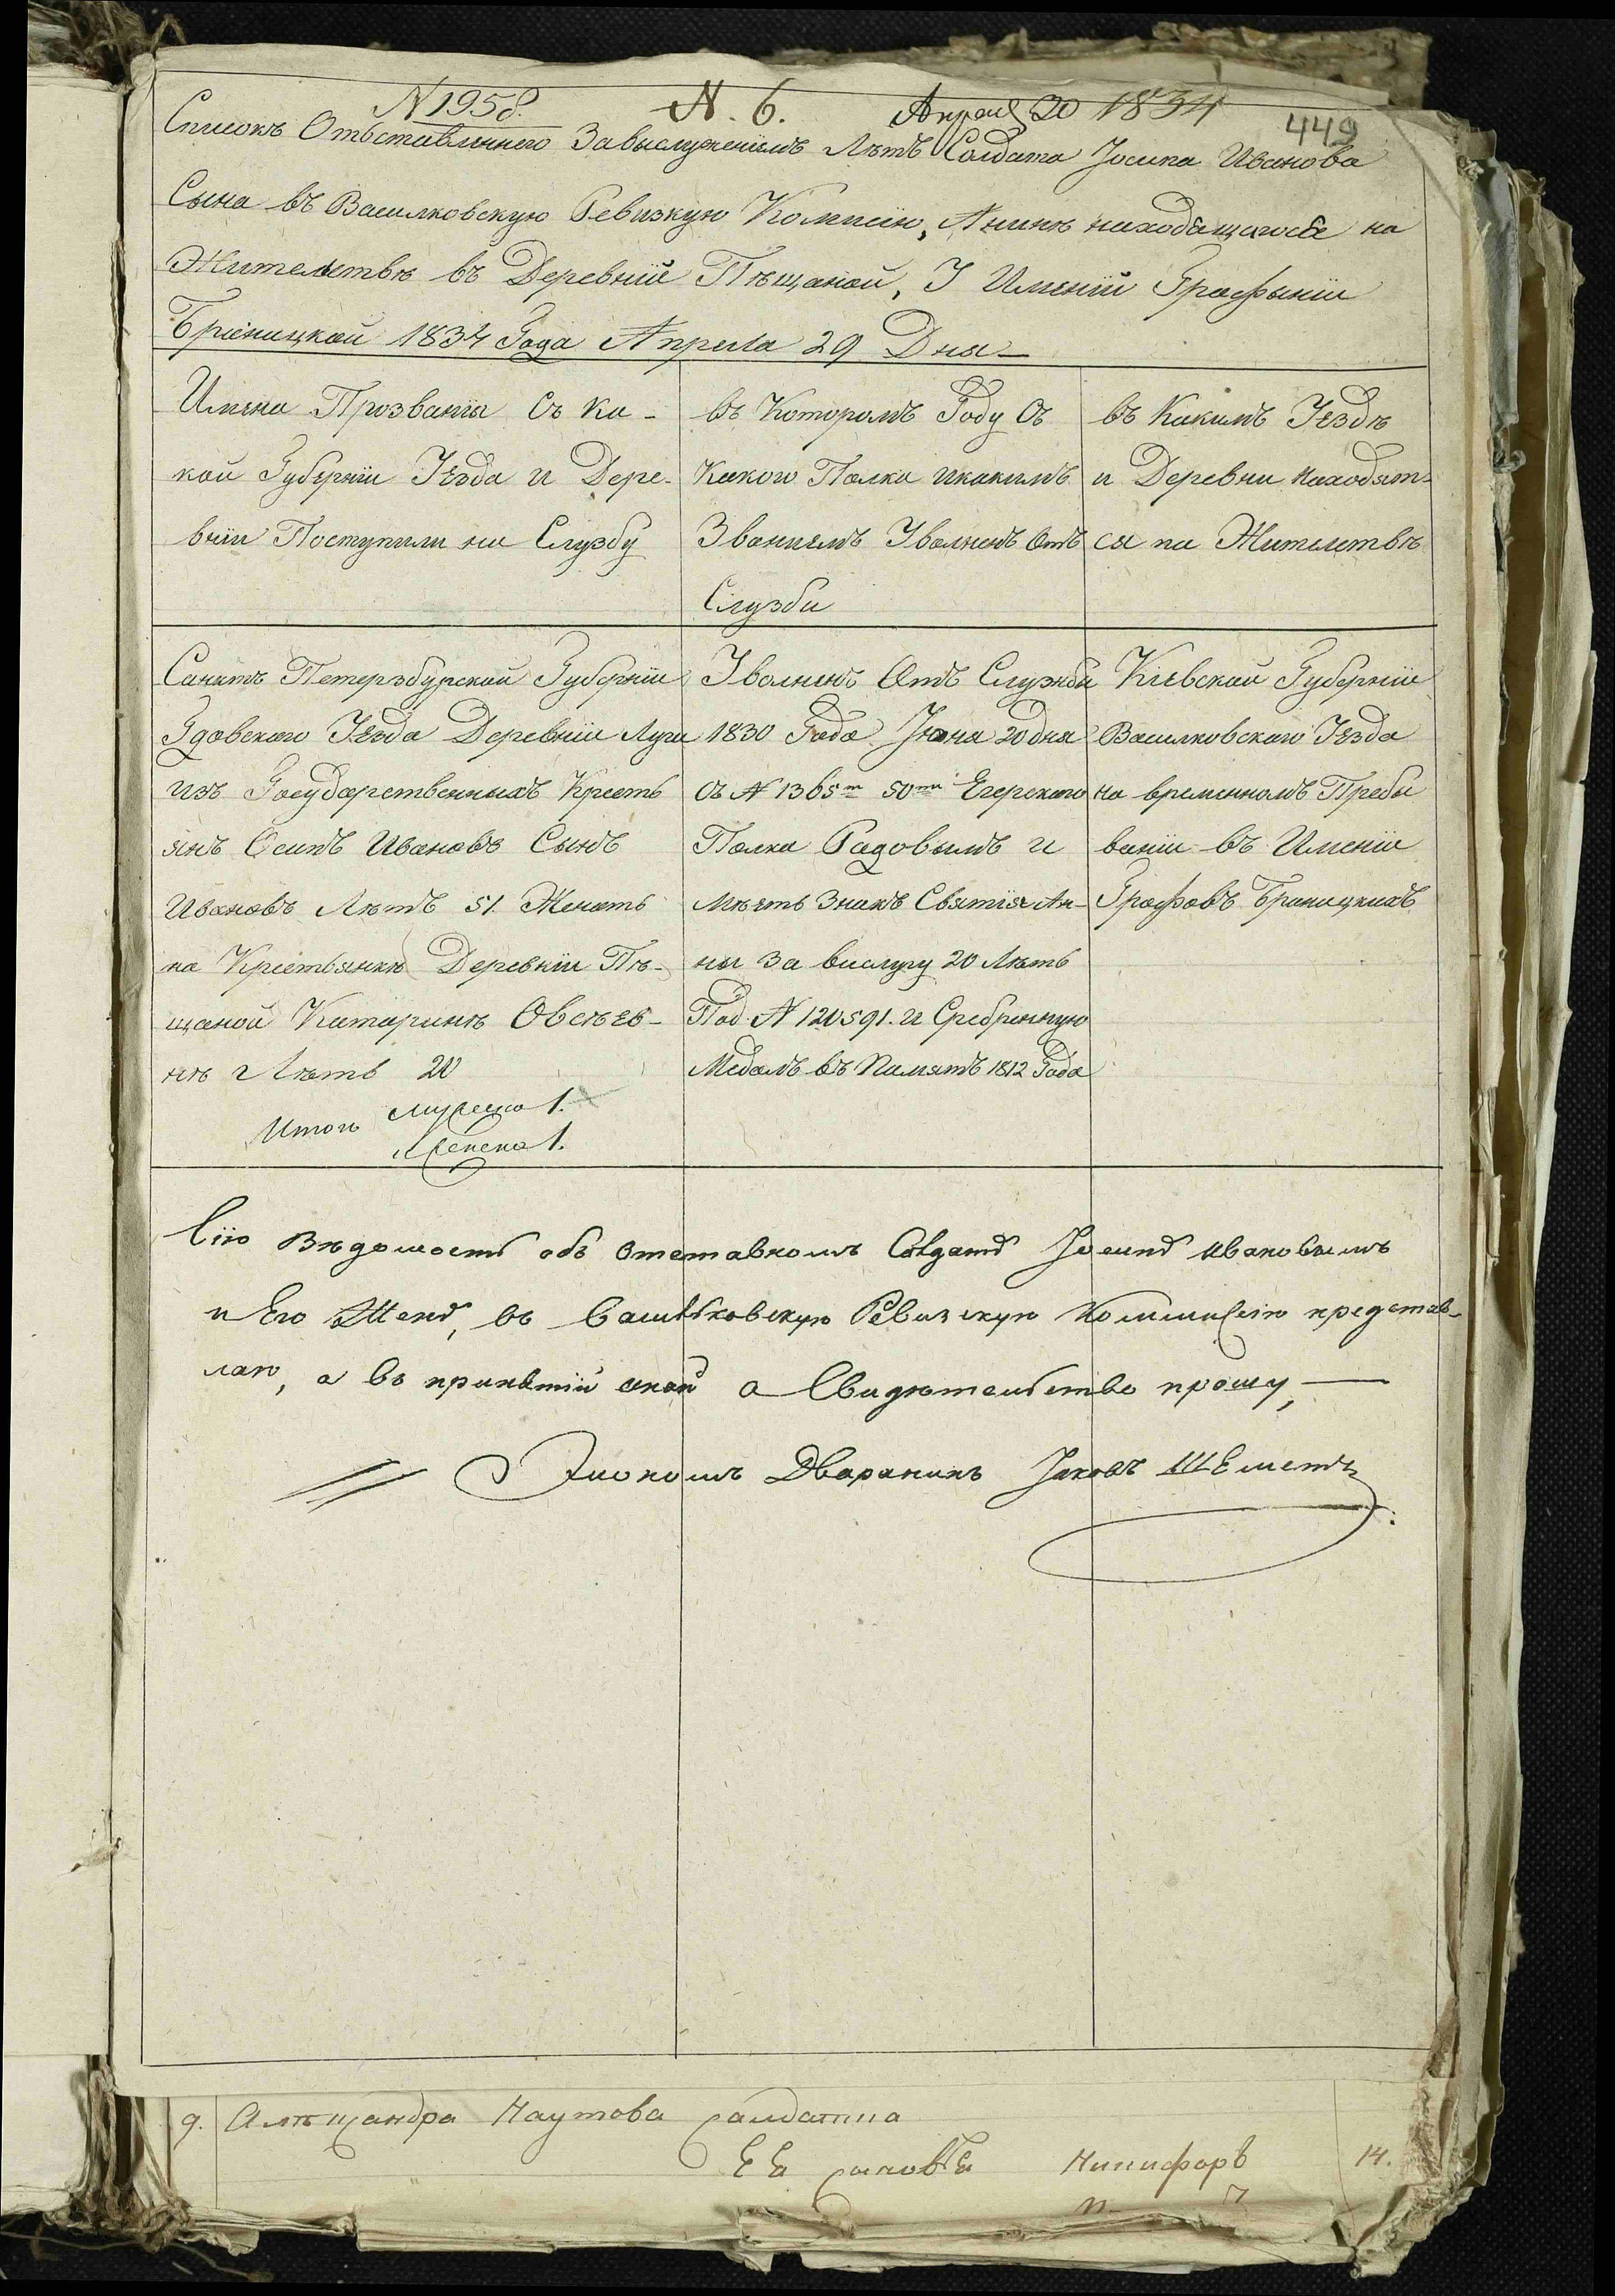 N 1958. N. 6. Апреля 20 1834
449
Списокъ Отьставленнего За выслужениемъ Лѣтъ Солдата Јосипа Иванова
Сына въ Василковскую Ревизкую Комисию, Анинѣ находящагося на
Жителствѣ въ Деревнїи Пѣщаной, І Имѣнїи Графынїи
Браницкой 1834 Года Апрела 29 Дня
Имена Прозванія съ Ка-
кой Губернїи Уезда и Дере-
внїи Поступили на Слузбу
въ Которомъ Году Съ
Какого Полка и какимъ
Званиемъ Уволненъ Отъ
Слузби
въ Какимъ Уездѣ
и Деревни находят-
ся на Жителствѣ
Санктъ Петерзбурской Губернїи
Гдовского Уезда Деревнїи Луги
изъ Государственныхъ Кресть
янъ Осипъ Ивановъ Сынъ
Ивановъ Лѣтъ 51. Женатъ
на Крестьянкѣ Деревнїи Пѣ-
щаной Катаринѣ Овсѣев-
нѣ Лѣтъ 20
Итого мужеска 1.
женска 1.
Уволненъ Отъ Службы
1830 Года Јюна 20 дня
съ N 1365m 50го Егерского
Полка Радовымъ и
Мѣетъ Знакъ Святія Ан-
ны За вислугу 20 Лѣтъ
Под N 120591. и Сребренную
Медалъ въ Памятъ 1812 Года
Кіевской Губернїи
Василковскаго Уезда
на временномъ Пребы
ванїи въ Именїи
Графовъ Браницкихъ
Сїю Вѣдомость объ Отставномъ Солдатѣ Јосипѣ Ивановымъ
и Его Женѣ, въ Васильковскую Ревизскую Коммисїю представ-
лаю, а въ принятїи оной а Свидѣтельство прошу,
Экономъ Дваранинъ Јаковъ Шеметъ
9. Алѣщандра Наутова салдатка
Ея сыновья Никифоръ 14.